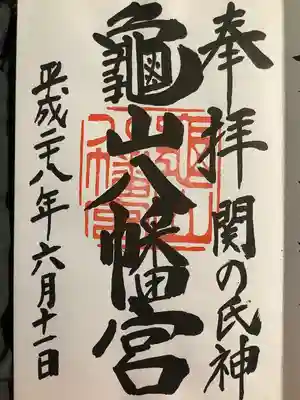 奉拝 関の氏神
龜山八幡宮
平成二十八年六月十一日